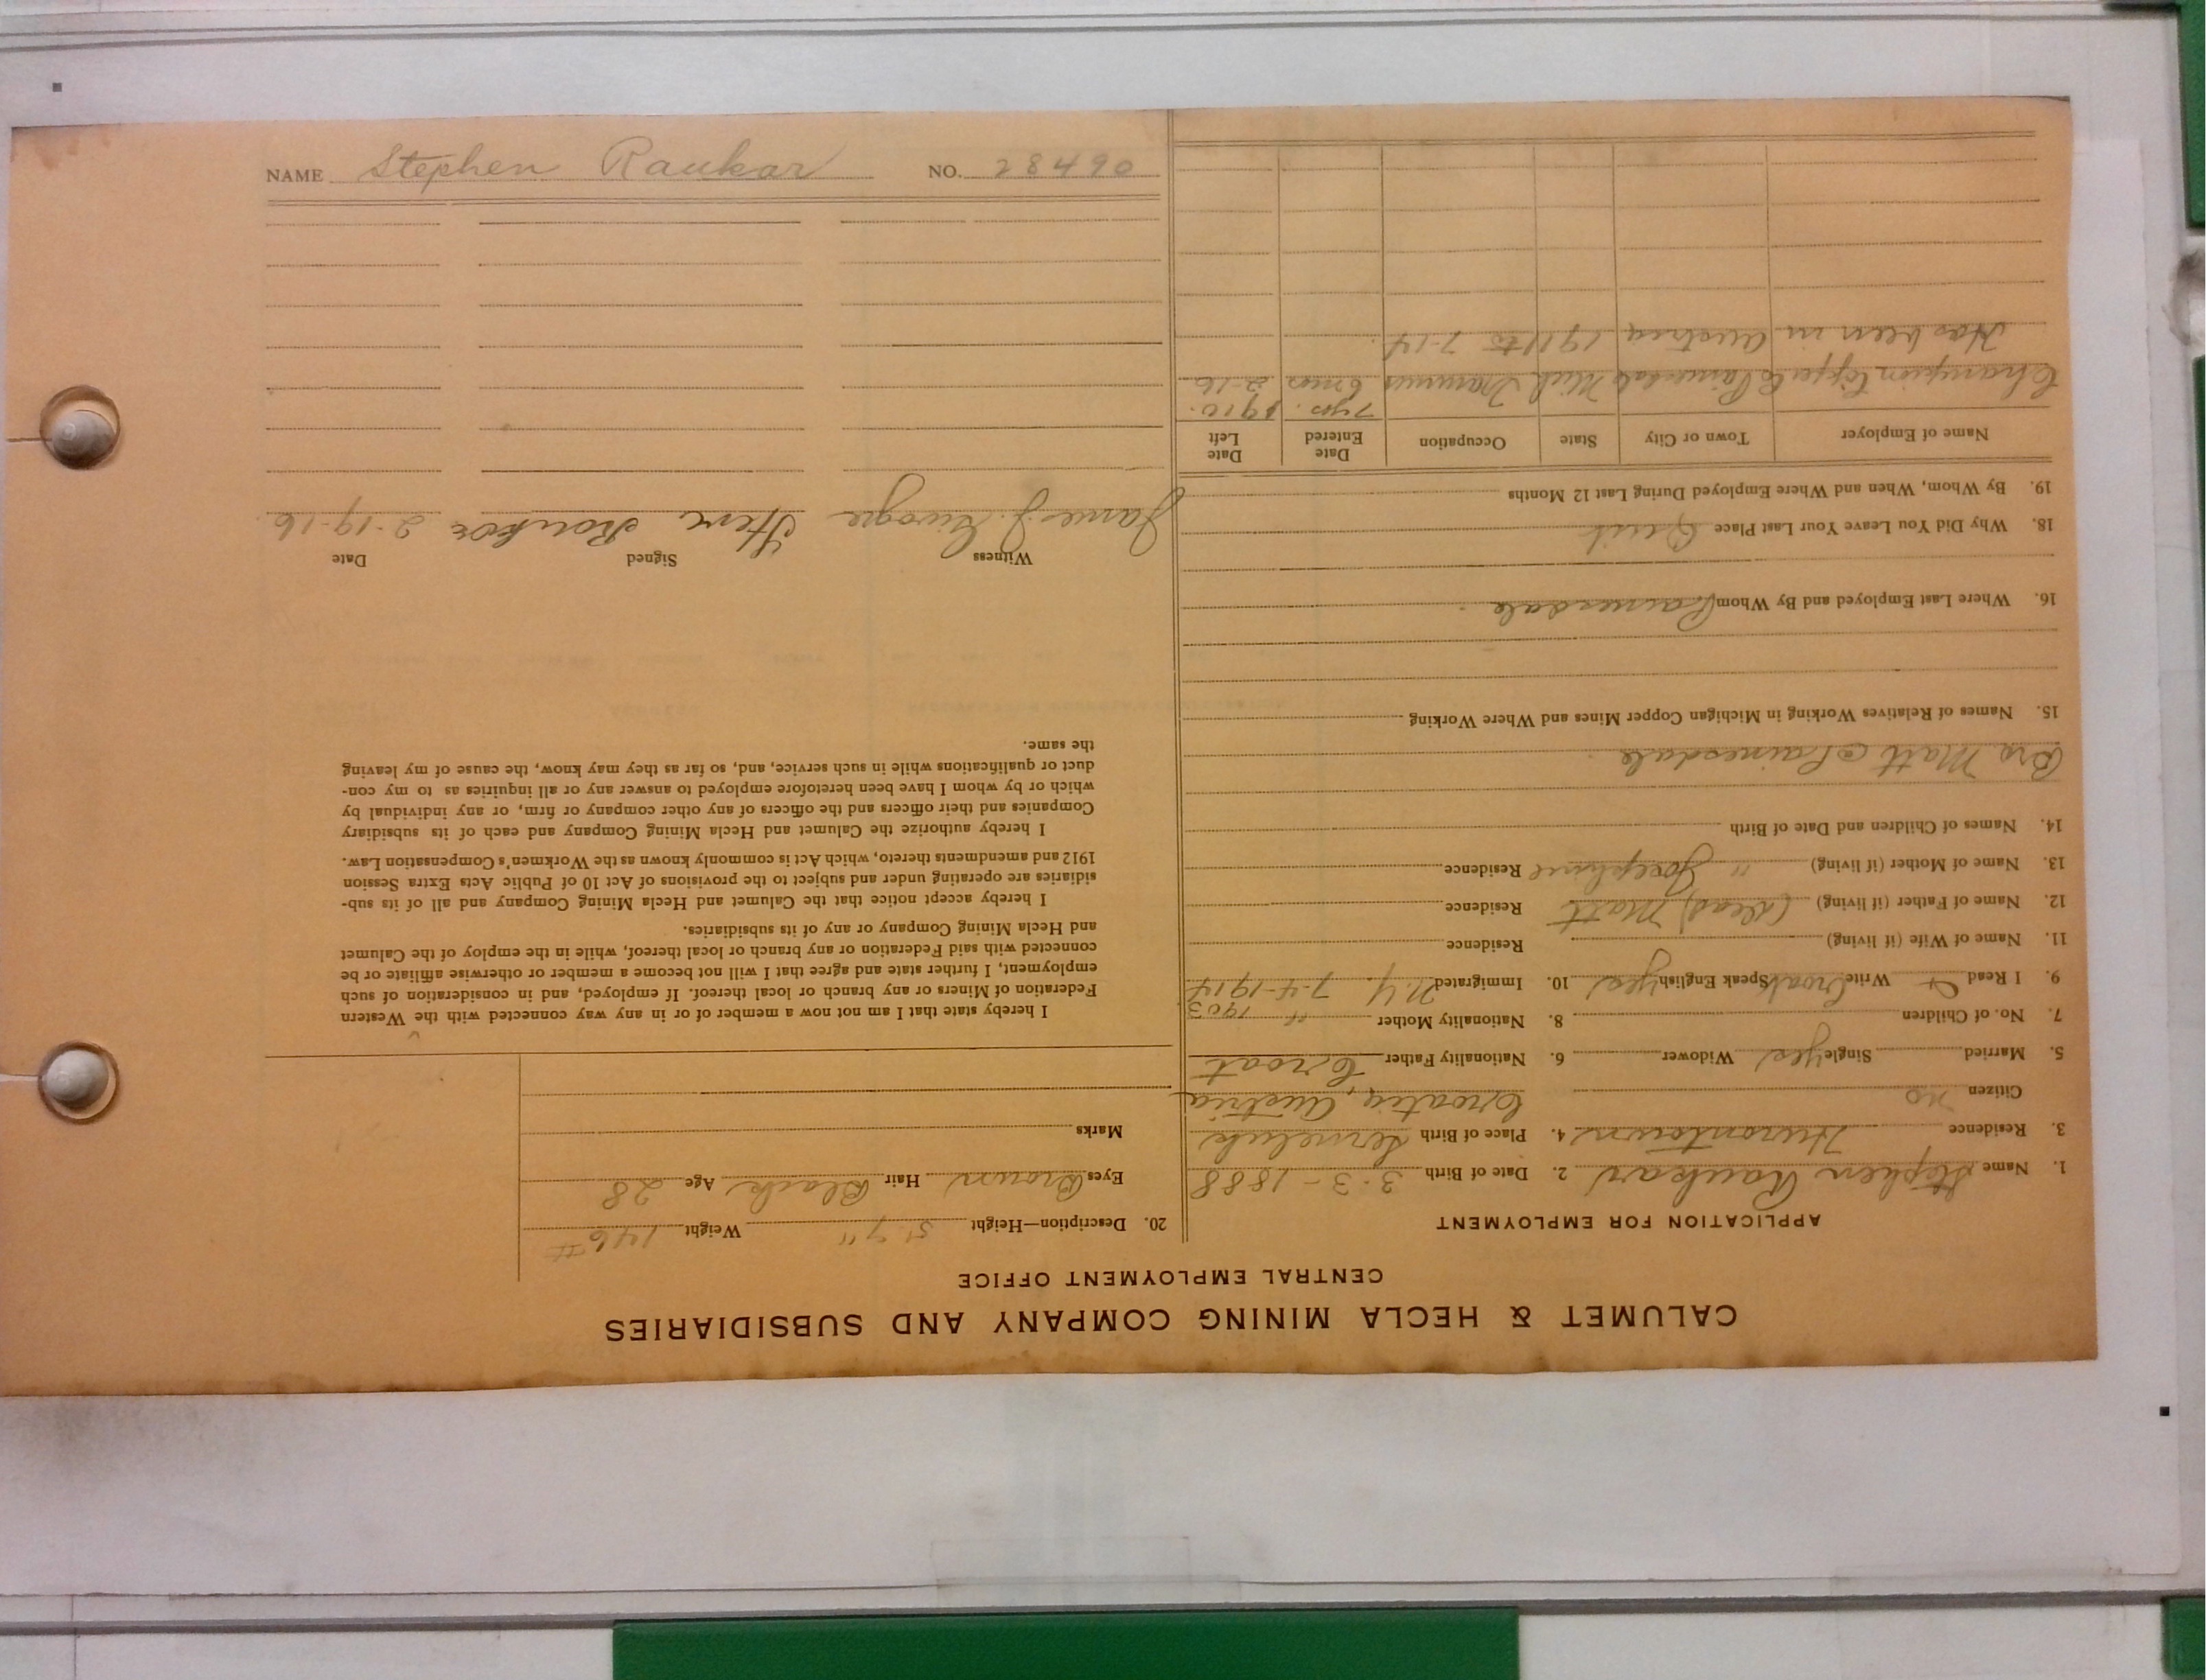 NAME Stephen Raukar NO. 28490
CALUMET & HECLA MINING COMPANY AND SUBSIDIARIES
CENTRAL EMPLOYMENT OFFICE
APPLICATION FOR EMPLOYMENT
1. Name Stephen Raukar 2. Date of Birth 3-3-1888
3. Residence Hurontown 4. Place of Birth
Croatia, Austria
Citizen no
5. Married Single yes Widower 6. Nationality Father Croat
7. No. of Children 8. Nationality Mother "
1903
9. I Read & Write Croat Speak English yes 10. Immigrated N.Y. 7-4-1914
11. Name of Wife (if living) Residence
12. Name of Father (if living) (dead) Matt Residence
13. Name of Mother (if living) " Josephine Residence
14. Names of Children and Date of Birth
Bro Matt @ Painesdale
15. Names of Relatives Working in Michigan Copper Mines and Where Working
16. Where Last Employed and By Whom Painesdale
18. Why Did You Leave Your Last Place Quit
19. By Whom, When and Where Employed During Last 12 Months
Name of Employer Town or City State Occupation Date Entered Date Left
7 yrs. 1910.
Champion Copper Co Painesdale Mich Trammer 6 mos 2-16
Has been in Austria 1911 to 7-14.
20. Description—Height 5' 7" Weight 146 #
Eyes Brown Hair Black Age 28
Marks
I hereby state that I am not now a member of or in any way connected with the Western
Federation of Miners or any branch or local thereof. If employed, and in consideration of such
employment, I further state and agree that I will not become a member or otherwise affiliate or be
connected with said Federation or any branch or local thereof, while in the employ of the Calumet
and Hecla Mining Company or any of its subsidiaries.
I hereby accept notice that the Calumet and Hecla Mining Company and all of its sub-
sidiaries are operating under and subject to the provisions of Act 10 of Public Acts Extra Session
1912 and amendments thereto, which Act is commonly known as the Workmen's Compensation Law.
I hereby authorize the Calumet and Hecla Mining Company and each of its subsidiary
Companies and their officers and the officers of any other company or firm, or any individual by
which or by whom I have been heretofore employed to answer any or all inquiries as to my con-
duct or qualifications while in such service, and, so far as they may know, the cause of my leaving
the same.
Witness Signed Date
James J. Steve Raukar 2-19-16